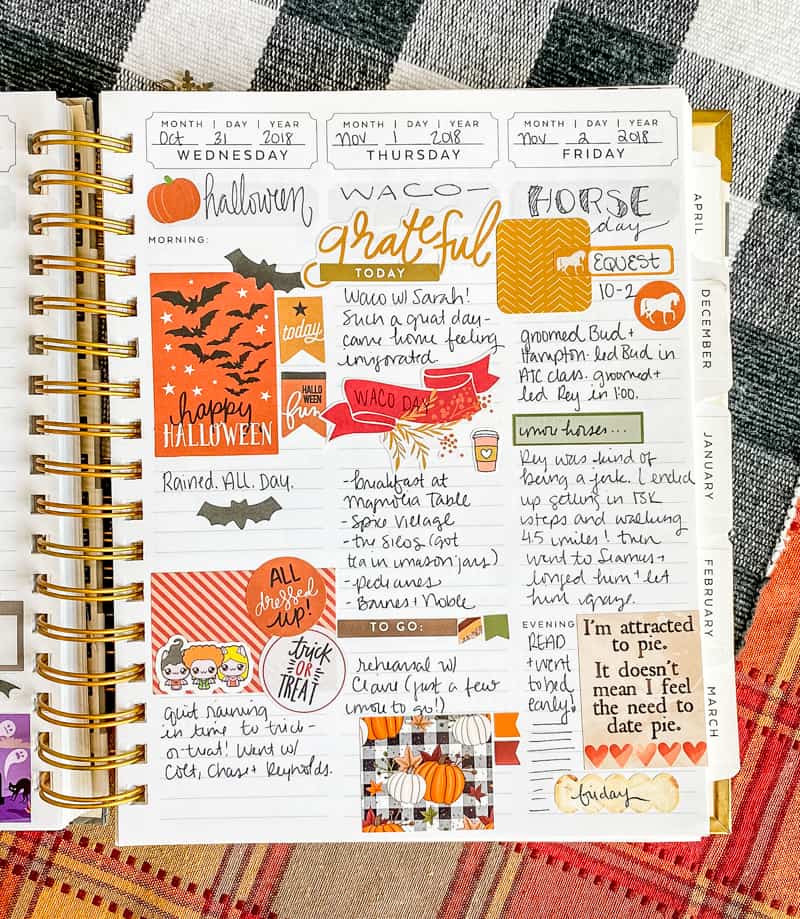 MONTH | DAY | YEAR
Oct 31 2018
WEDNESDAY
halloween
MORNING:
today
happy
HALLOWEEN
HALLO
WEEN
fun
Rained. All. Day.
ALL
dressed
up!
trick
OR
TREAT
Quit raining
in time to trick-
or-treat! Went w/
Colt, Chase + Reynolds.
MONTH | DAY | YEAR
Nov 1 2018
THURSDAY
WACO-
grateful
TODAY
Waco w/ Sarah!
Such a great day-
came home feeling
invigorated
WACO DAY
-breakfast at
Magnolia Table
-Spice Village
-the Silos (got
tea in mason jars)
-pedicures
-Barnes + Noble
TO GO:
rehearsal w/
Claire (just a few
more to go!)
MONTH | DAY | YEAR
Nov 2 2018
FRIDAY
HORSE
day
EQUEST
10-2
groomed Bud +
Hampton. led Bud in
ATC class. groomed +
led Rey in 1:00.
more horses...
Rey was kind of
being a jerk. I ended
up getting in 15K
steps and walking
4.5 miles! then
went to Seamus +
longed him + let
him graze.
EVENING
READ
+ went
to bed
early!
I'm attracted
to pie.
It doesn't
mean I feel
the need to
date pie.
friday
APRIL
DECEMBER
JANUARY
FEBRUARY
MARCH